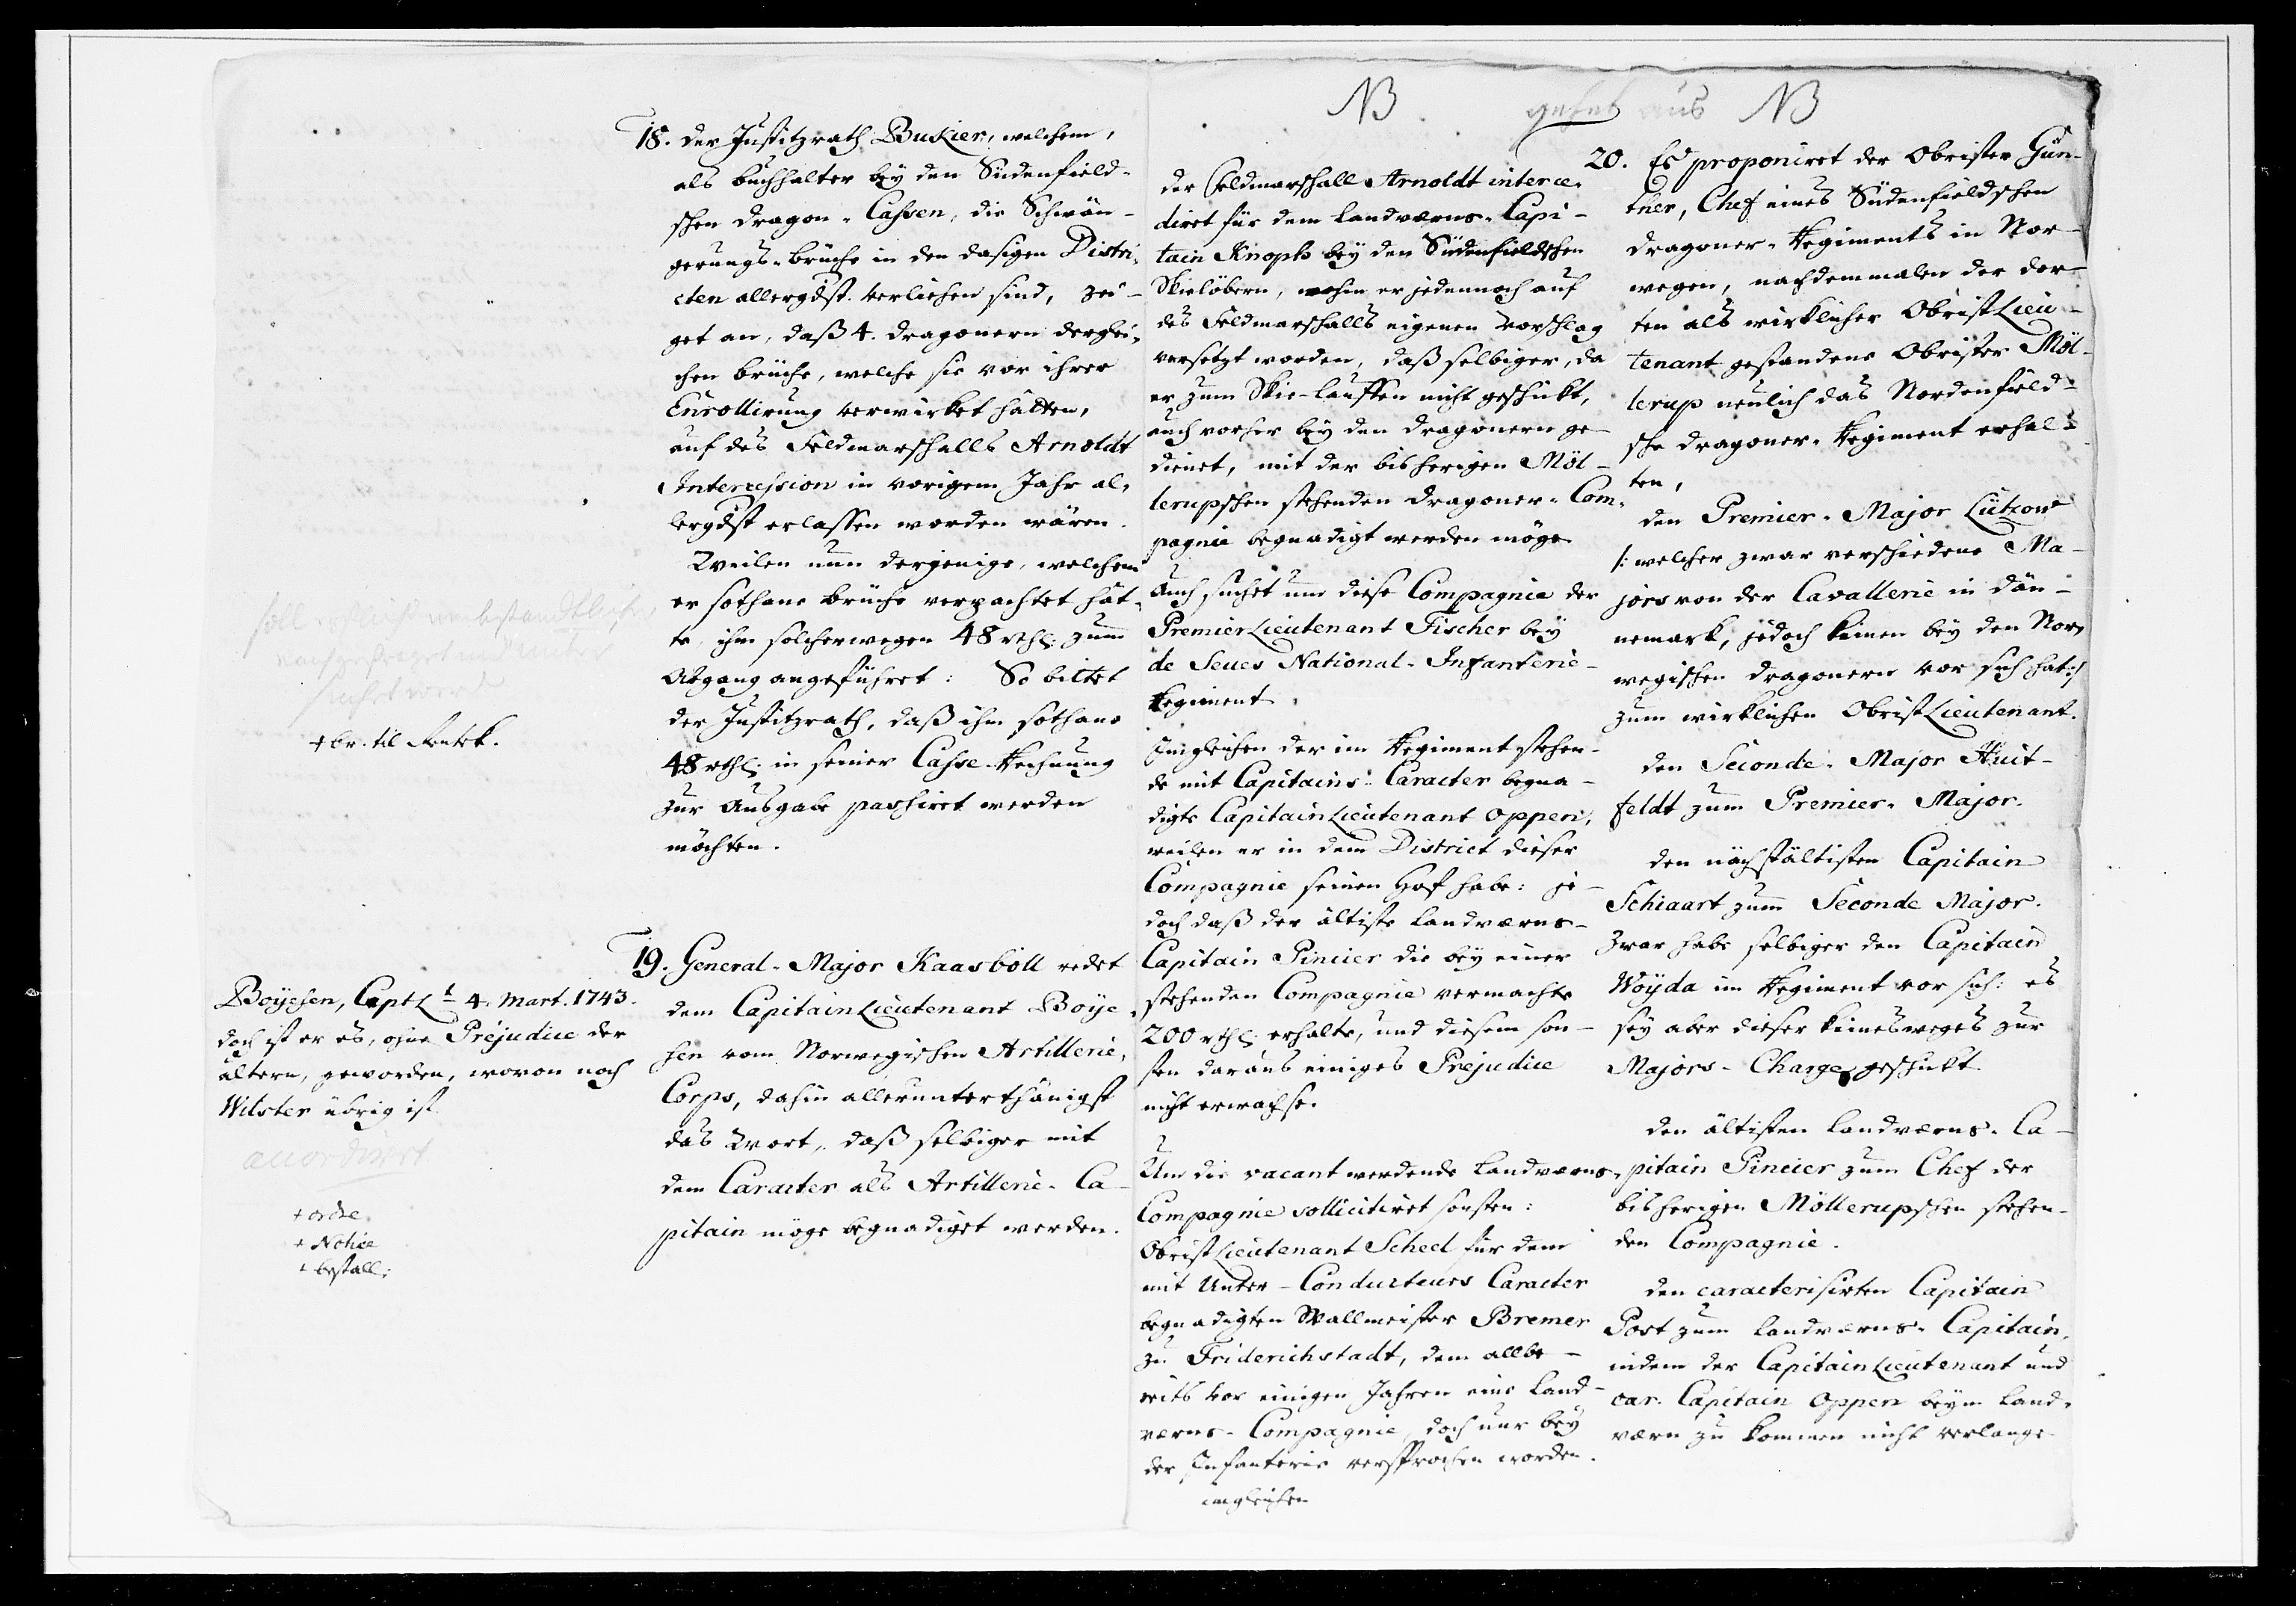 18. der Justitzrath Bukier, welchem,
als buchhalter bey den Südenfield-
schen dragon-Cassen, die Schwän-
gerungs-brüche in den dasigen Distri-
cten allergdst. verliehen sind, zei-
get an, daß 4. dragonern derglei-
chen brüche, welche sie vor ihrer
Enrollirung verwirket hätten,
auf des Feldmarschalls Arnoldt
Intercession in vorigem Jahr al-
lergdst erlassen worden wären.
Weilen nun derjenige, welchem
er sothane brüche verpachtet hät-
te, ihm solcherwegen 48 rthl. zum
Abgang angeführet: So bittet
der Justitzrath, daß ihm sothane
48 rthl. in seiner Casse-Rechnung
zur Ausgabe passiret werden
möchten.
soll
nachgefraget und
werde
+ br. til Rentek.
19. General-Major Kaasböll redet
dem CapitainLieutenant Boye-
sen vom Norwegischen Artillerie-
Corps, dahin allerunterthänigst
das Wort, daß selbiger mit
dem Caracter als Artillerie-Ca-
pitain möge begnadiget werden.
Boyesen, CaptLt 4. Mart. 1743.
doch ist er es, ohne Préjudice der
ältern, geworden, wovon noch
Wilster übrig ist.
accordirt
+ ordre
+ Notice
+ bestall:
NB
der Feldmarschall Arnoldt interce-
diret für dem landværns-Capi-
tain Knoph bey den Südenfieldschen
Skieløbern, wohin er jedennoch auf
des Feldmarschalls eigenen Vorschlag
versetzt worden, daß selbiger, da
er zum Skie-lauffen nicht geschikt,
auch vorher bey den dragonern ge-
dienet, mit der bisherigen Møl-
lerupschen stehenden dragoner-Com-
pagnie begnadigt werden möge
Auch suchet um diese Compagnie der
PremierLieutenant Fischer bey
de Seues National-Infanterie-
Regiment.
Imgleichen der im Regiment stehen-
de mit Capitains-Caracter begna-
digte CapitainLieutenant Oppen,
weilen er in dem District dieser
Compagnie seinen Hof habe: je-
doch daß der ältiste landværns-
Capitain Pincier die bey einer
stehenden Compagnie vermachte
200 rthl. erhalte, und diesem son-
sten daraus einiges Prejudice
nicht erwachse.
Um die vacant werdende landværns-
Compagnie sollicitiret sonsten:
ObristLieutenant Scheel für dem
mit Unter-Conducteurs Caracter
begnadigten Wallmeister Bremer
zu Friderichstadt, dem allbe-
reits vor einigen Jahren eine land-
værns-Compagnie, doch nur bey
der Infanterie versprochen worden.
imgleichen
gehet aus NB
20. Es proponiret der Obrister Gün-
ther, Chef eines Südenfieldschen
dragoner-Regiments in Nor-
wegen, nachdemmalen der dor-
ten als wirklicher ObristLieu-
tenant gestandene Obrister Møl-
lerup neulich das Nordenfield-
sche dragoner-Regiment erhal-
ten,
den Premier-Major Lützow
/: welcher zwar verschiedene Ma-
jors von der Cavallerie in Dän-
nemark, jedoch keinen bey den Nor-
wegischen dragonern vor sich hat :/
zum wirklichen ObristLieutenant.
den Seconde-Major Huit-
feldt zum Premier-Major.
den nächstältisten Capitain
Schiaart zum Seconde Major.
Zwar habe selbiger den Capitain
Woyda im Regiment vor sich: es
sey aber dieser keinesweges zur
Majors-Charge geschikt.
den ältisten landværns-Ca-
pitain Pincier zum Chef der
bisherigen Möllerupschen stehen-
den Compagnie.
den caracterisirten Capitain
Post zum landværns-Capitain,
indem der CapitainLieutenant und
car. Capitain Oppen beym land-
værn zu kommen nicht verlange